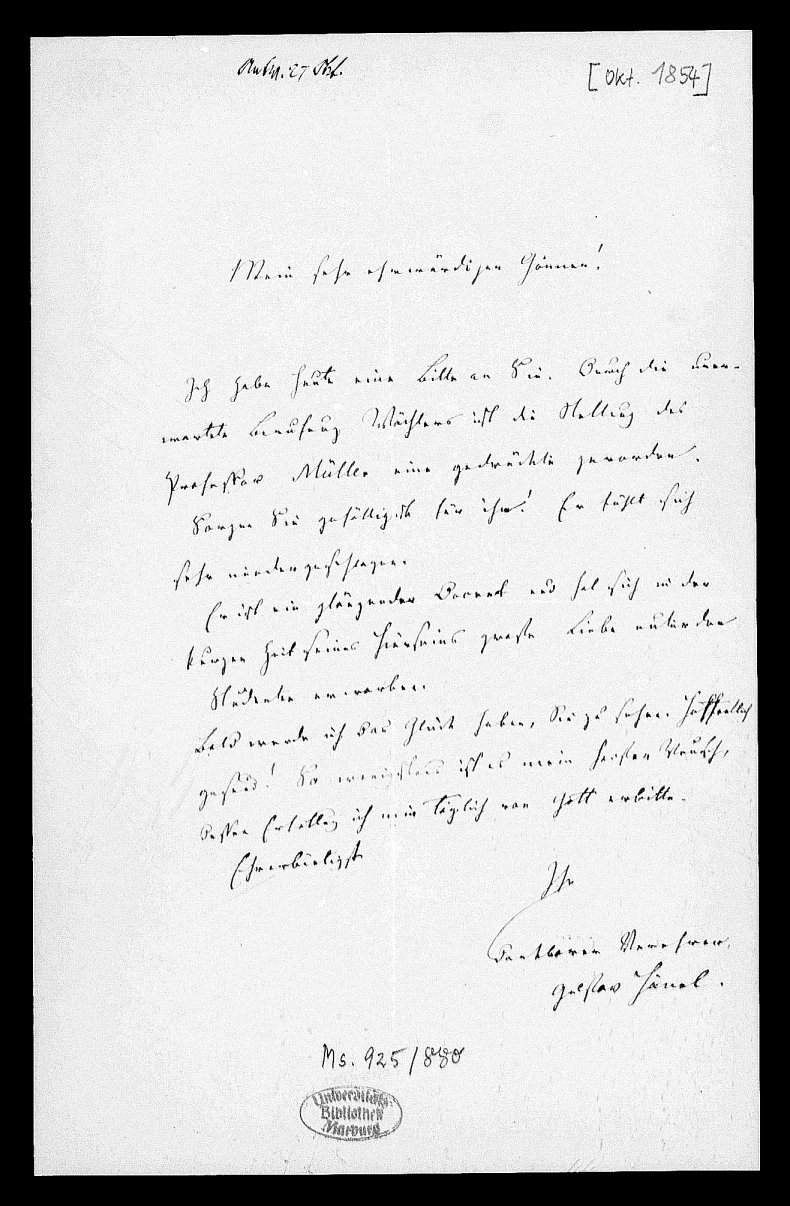 Antw. 27 Okt.
[Okt. 1854]
Mein sehr ehrwürdiger Gönner!
Ich habe heute eine Bitte an Sie. Durch die uner-
wartete Berufung Wächters ist die Stellung des
Professor Müller eine gedrückte geworden.
Sorgen Sie gefälligst für ihn! Er fühlt sich
sehr niedergeschlagen.
Er ist ein glänzender Docent und hat sich in der
kurzen Zeit seines Hierseins große Liebe unter den
Studenten erworben.
Bald werde ich das Glück haben, Sie zu sehen. Hoffentlich
gesund! So wenigstens ist es mein Wunsch,
dessen Erfüllung ich mir täglich von Gott erbitte.
Ehrerbietigst
Ihr
dankbarer Verehrer,
Gustav Hänel.
Ms. 925/880
Universitäts-
Bibliothek
Marburg